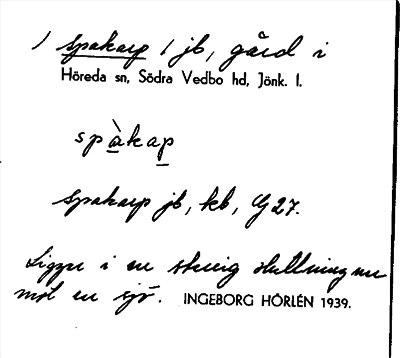 1 Spakarp 1 jb, gård i
Höreda sn, Södra Vedbo hd, Jönk. l.
spàkap
Spakarp jb, kb, G 27.
Ligger i en stenig sluttning ner
mot en sjö. INGEBORG HÖRLÉN 1939.